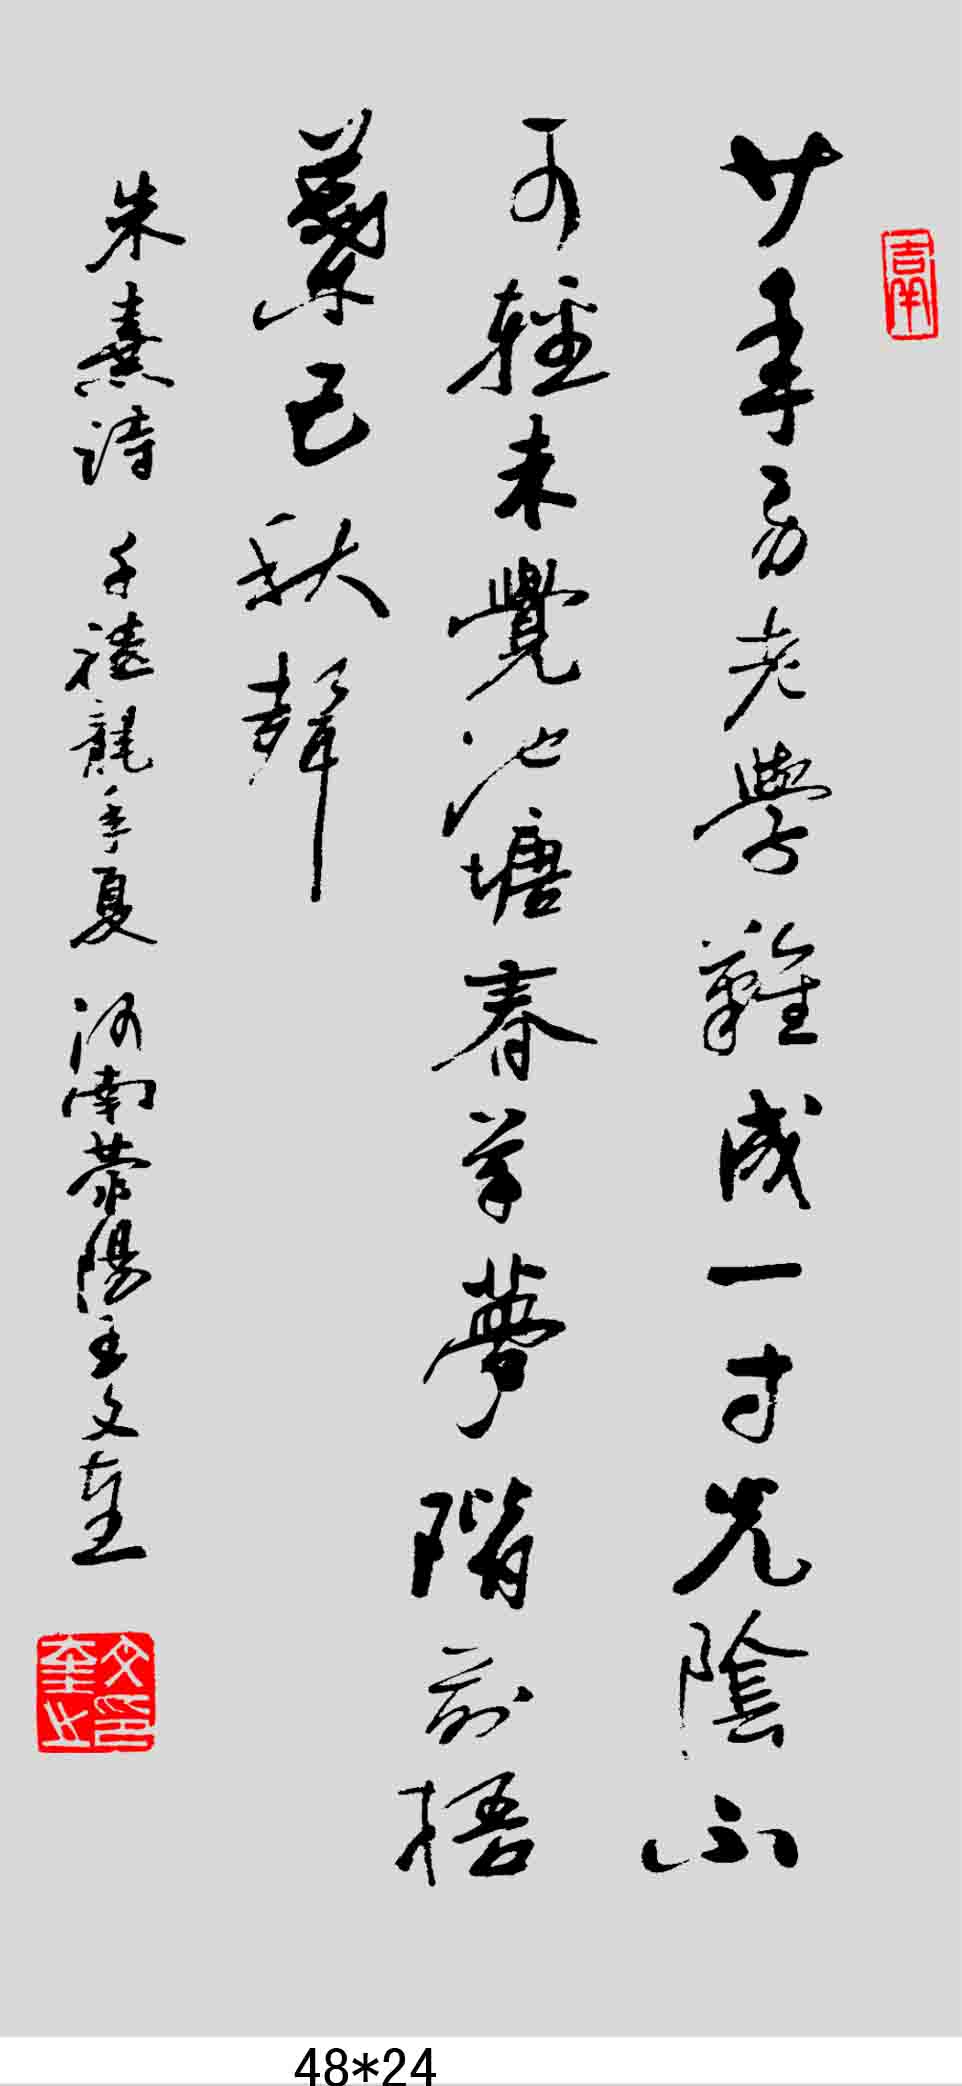 少年易老學難成一寸光陰不
可輕未覺池塘春草夢階前梧
葉已秋聲
朱熹詩 千禧龍年夏 河南滎陽王文奎
文奎之印
48*24